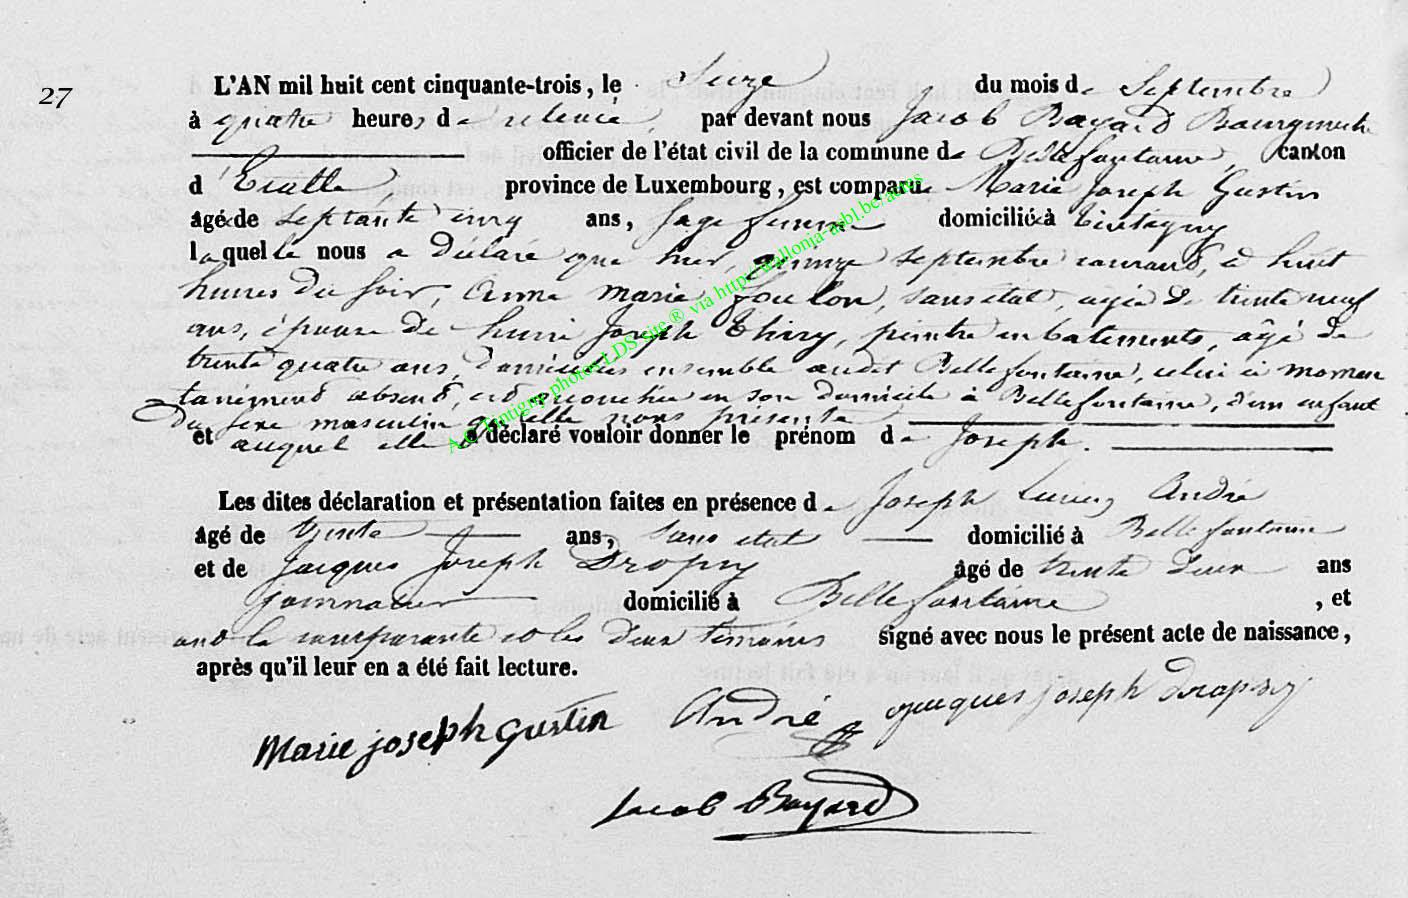 27
L'AN mil huit cent cinquante-trois, le Seize du mois de Septembre
à quatre heures de relevée, par devant nous Jacob Bayard Bourgmestre
officier de l'état civil de la commune de Bellefontaine, canton
d'Etalle province de Luxembourg, est comparue Marie Joseph Gustin
âgée de septante cinq ans, sage femme domiciliée à Tintigny
laquelle nous a déclaré que hier, quinze septembre courant, à huit
heures du soir, Anne Marie Foulon, sans état, agée de trente neuf
ans, épouse de henri Joseph Thiry, peintre en batiments, agé de
trente quatre ans, domiciliés ensemble audit Bellefontaine, celui ci momen
tanément absent, est accouchée en son domicile à Bellefontaine, d'un enfant
Du sexe masculin qu'elle nous présente
et auquel elle a déclaré vouloir donner le prénom de Joseph.
Les dites déclaration et présentation faites en présence de Joseph André
âgé de trente ans, sans état domicilié à Bellefontaine
et de Jacques Joseph Dropsy âgé de trente deux ans
journalier domicilié à Bellefontaine, et
ont la comparante et les deux témoins signé avec nous le présent acte de naissance,
après qu'il leur en a été fait lecture.
Marie joseph gustin André jacques joseph dropsy
Jacob Bayard
A.C. Tintigny photos LDS site ® via http://wallonia-asbl.be/actes